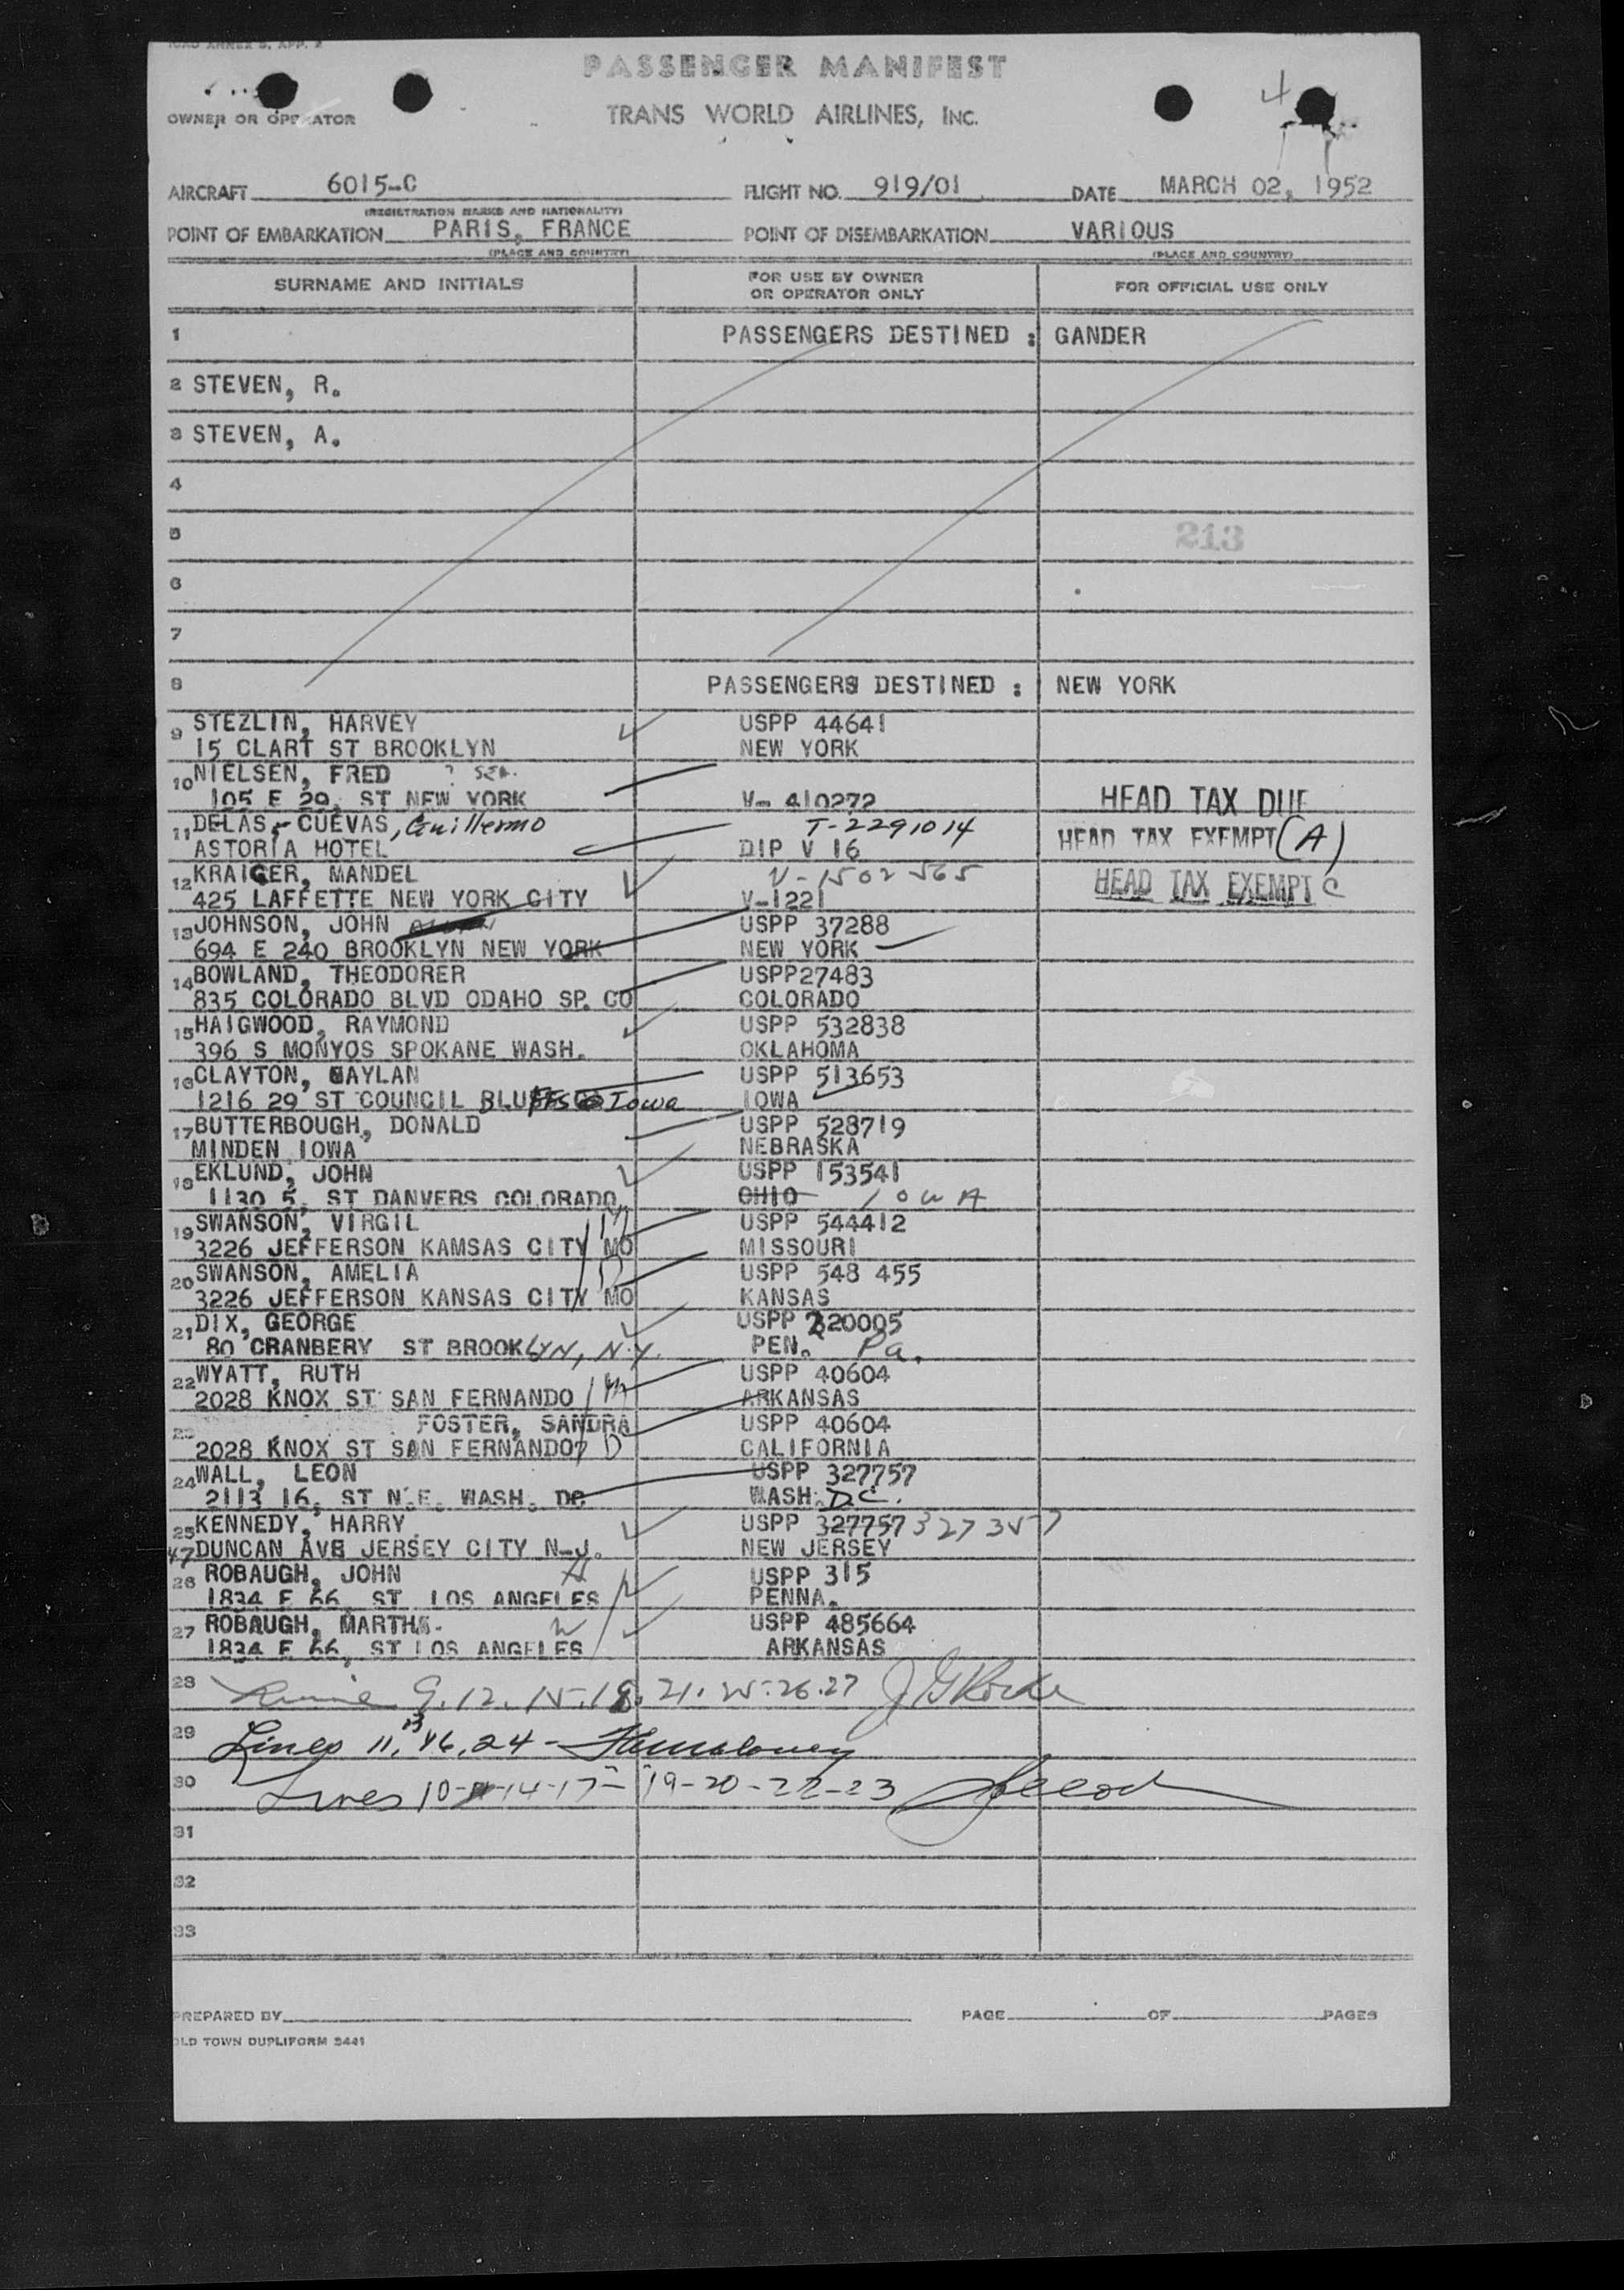 ICAO ANNEX 9, APP. 2
PASSENGER MANIFEST
4
OWNER OR OPERATOR
TRANS WORLD AIRLINES, INC.
AIRCRAFT 6015-C FLIGHT NO. 919/01 DATE MARCH 02, 1952
(REGISTRATION MARKS AND NATIONALITY)
POINT OF EMBARKATION PARIS, FRANCE POINT OF DISEMBARKATION VARIOUS
(PLACE AND COUNTRY) (PLACE AND COUNTRY)
SURNAME AND INITIALS FOR USE BY OWNER OR OPERATOR ONLY FOR OFFICIAL USE ONLY
1 PASSENGERS DESTINED : GANDER
2 STEVEN, R.
3 STEVEN, A.
4
5 213
6
7
8 PASSENGERS DESTINED : NEW YORK
9 STEZLIN, HARVEY USPP 44641
15 CLART ST BROOKLYN NEW YORK
10 NIELSEN, FRED
105 E 29, ST NEW YORK V- 410272 HEAD TAX DUE
11 DELAS - CUEVAS, Guillermo T-2291014 HEAD TAX EXEMPT (A)
ASTORIA HOTEL DIP V 16
12 KRAIGER, MANDEL V-1502565 HEAD TAX EXEMPT C
425 LAFFETTE NEW YORK CITY V-1221
13 JOHNSON, JOHN USPP 37288
694 E 240 BROOKLYN NEW YORK NEW YORK
14 BOWLAND, THEODORER USPP27483
835 COLORADO BLVD ODAHO SP. CO COLORADO
15 HAIGWOOD, RAYMOND USPP 532838
396 S MONYOS SPOKANE WASH. OKLAHOMA
16 CLAYTON, GAYLAN USPP 513653
1216 29 ST COUNCIL BLUFFS Iowa IOWA
17 BUTTERBOUGH, DONALD USPP 528719
MINDEN IOWA NEBRASKA
18 EKLUND, JOHN USPP 153541
1130 5, ST DANVERS COLORADO, OHIO IOWA
19 SWANSON, VIRGIL USPP 544412
3226 JEFFERSON KAMSAS CITY MO MISSOURI
20 SWANSON, AMELIA USPP 548 455
3226 JEFFERSON KANSAS CITY MO KANSAS
21 DIX, GEORGE USPP 220005
80 CRANBERY ST BROOKLYN, N.Y. PEN. Pa.
22 WYATT, RUTH USPP 40604
2028 KNOX ST SAN FERNANDO ARKANSAS
23 FOSTER, SANDRA USPP 40604
2028 KNOX ST SAN FERNANDO D CALIFORNIA
24 WALL, LEON USPP 327757
2113 16, ST N.E. WASH. DC WASH. D.C.
25 KENNEDY, HARRY USPP 327757 327357
47 DUNCAN AVE JERSEY CITY N-J. NEW JERSEY
26 ROBAUGH, JOHN H USPP 315
1834 E 66, ST LOS ANGELES PENNA.
27 ROBAUGH, MARTHA W USPP 485664
1834 E 66, ST LOS ANGELES ARKANSAS
28 9.12.15.18.21.25.26.27
29 Lines 11, 13, 16, 24 -
30 Lines 10-14-17-19-20-22-23
31
32
33
PREPARED BY PAGE OF PAGES
OLD TOWN DUPLIFORM 5441